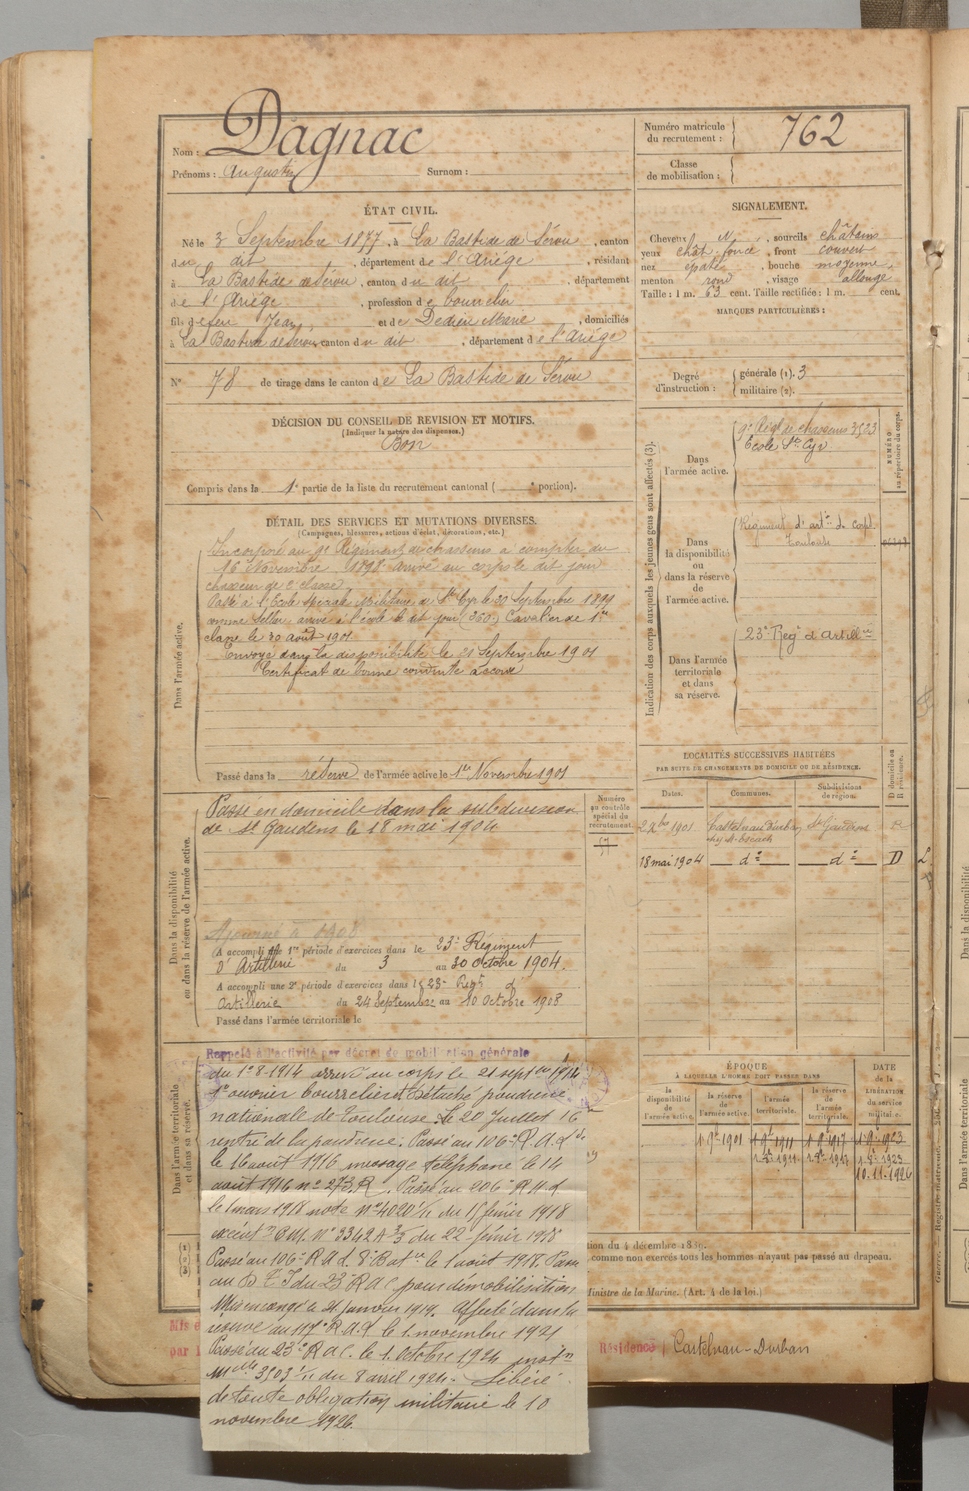 Nom : Dagnac
Prénoms : Augustin Surnom :
Numéro matricule
du recrutement : 762
Classe
de mobilisation :
ÉTAT CIVIL.
Né le 3 Septembre 1877, à La Bastide de Sérou, canton
du dit, département de l'Ariège, résidant
à La Bastide de Sérou, canton du dit, département
de l'Ariège, profession de boucher
fils de feu Jean et de Dedieu Marie, domiciliés
à La Bastide de Sérou, canton du dit, département de l'Ariège
N° 78 de tirage dans le canton de La Bastide de Sérou
SIGNALEMENT.
Cheveux N, sourcils châtains
yeux chât. foncé, front couvert
nez épaté, bouche moyenne
menton rond, visage allongé
Taille : 1 m. 63 cent. Taille rectifiée : 1 m. cent.
MARQUES PARTICULIÈRES :
Degré
d'instruction :
générale (1). 3
militaire (2).
DÉCISION DU CONSEIL DE REVISION ET MOTIFS.
(Indiquer la nature des dispenses.)
Bon
Compris dans la 1e partie de la liste du recrutement cantonal ( e portion).
DÉTAIL DES SERVICES ET MUTATIONS DIVERSES.
(Campagnes, blessures, actions d'éclat, décorations, etc.)
Dans l'armée active.
Incorporé au 9e Régiment de chasseurs à compter du
16 Novembre 1898 arrivé au corps le dit jour
chasseur de 2e classe.
Passé à l'Ecole spéciale Militaire de St Cyr le 30 Septembre 1899
comme sellier arrivé à l'école le dit jour (360) Cavalier de 1re
classe le 30 août 1901
Envoyé dans la disponibilité le 21 Septembre 1901
Certificat de bonne conduite accordé
Passé dans la réserve de l'armée active le 1er Novembre 1901
Indication des corps auxquels les jeunes gens sont affectés (3).
Dans
l'armée active.
9e Régt de chasseurs 3523
Ecole St Cyr
NUMÉRO
au répertoire du corps.
Dans
la disponibilité
ou
dans la réserve
de
l'armée active.
Régiment d'artie de corps
Toulouse
Dans l'armée
territoriale
et dans
sa réserve.
23e Regt d'Artillie
LOCALITÉS SUCCESSIVES HABITÉES
PAR SUITE DE CHANGEMENTS DE DOMICILE OU DE RÉSIDENCE.
Dates.
Communes.
Subdivisions
de région.
D domicile ou
R résidence.
1901 Castelnau Durban St Gaudens R
18 mai 1904 do do D
Dans la disponibilité
ou dans la réserve de l'armée active.
Passé en domicile dans la subdivision
de St Gaudens le 18 mai 1904
Numéro
au contrôle
spécial du
recrutement.
Ajourné à 1908
A accompli une 1re période d'exercices dans le 23e Régiment
d'Artillerie du 3 au 30 Octobre 1904.
A accompli une 2e période d'exercices dans le 23e Regt d'
Artillerie du 24 Septembre au 10 Octobre 1908
Passé dans l'armée territoriale le
Dans l'armée territoriale
et dans sa réserve.
Rappelé à l'activité par décret de mobilisation générale
du 1er 8-1914 arrivé au corps le 21 septbre 1914
1e ouvrier bourrelier. Détaché poudrerie
nationale de Toulouse. Le 20 Juillet 16
rentré de la poudrerie. Passé au 106e R.A.Lde
le 16 août 1916 message téléphoné le 14
août 1916 no 273 R. Passé au 206e R A d
le 1 mars 1918 note No 4020 du 15 février 1918
du 22 février 1918
Passé au 106e R A d. 8e Batie le 1 août 1918. Passé
au D.T.I du 23e R A C pour démobilisation
Mis en congé le 21 Janvier 1919. Affecté dans la
réserve au 117e R.A.L le 1 novembre 1921
Passé au 23e R A C. le 1 Octobre 1924 instn
Mlle 3503 du 8 avril 1924. Libéré
de toute obligation militaire le 10
novembre 1926.
ÉPOQUE
À LAQUELLE L'HOMME DOIT PASSER DANS
la
disponibilité
de
l'armée active.
la réserve
de
l'armée active.
l'armée
territoriale.
la réserve
de
l'armée
territoriale.
DATE
de la
LIBÉRATION
du service
militaire.
1 9bre 1901 1 9bre 1911 1 9bre 1917 1 9bre 1923
10.11.1926
comme non exercés tous les hommes n'ayant pas passé au drapeau.
Ministre de la Marine. (Art. 4 de la loi.)
Mis e
par l
Résidence : Castelnau-Durban